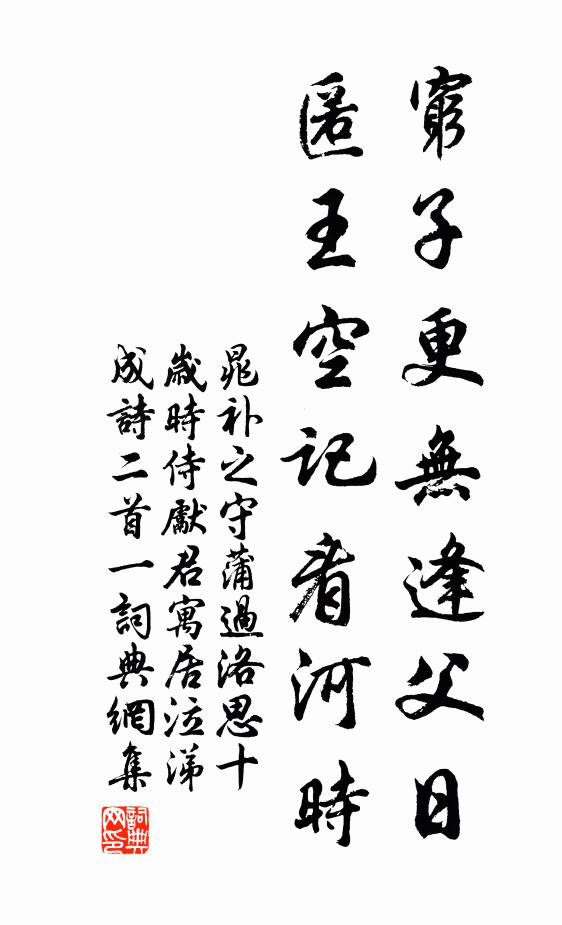 窮子更無逢父日
匿王空記看河時
晁补之守蒲過洛思十
歲時侍獻君寓居泣涕
成詩二首一詞典網集
詞典
网印